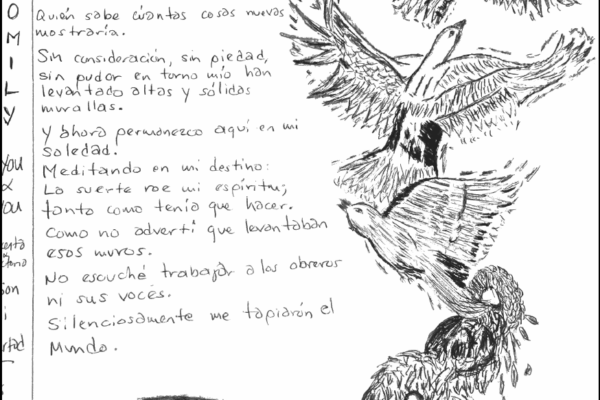 OMILY
Quién sabe cuantas cosas nuevas
mostraría.
Sin consideración, sin piedad,
sin pudor en torno mío han
levantado altas y sólidas
murallas.
Y ahora permanezco aquí en mi
soledad.
Meditando en mi destino:
La suerte roe mi espíritu;
tanto como tenía que hacer.
Como no advertí que levantaban
esos muros.
No escuché trabajar a los obreros
ni sus voces.
Silenciosamente me tapiarón el
Mundo.
you
you
son